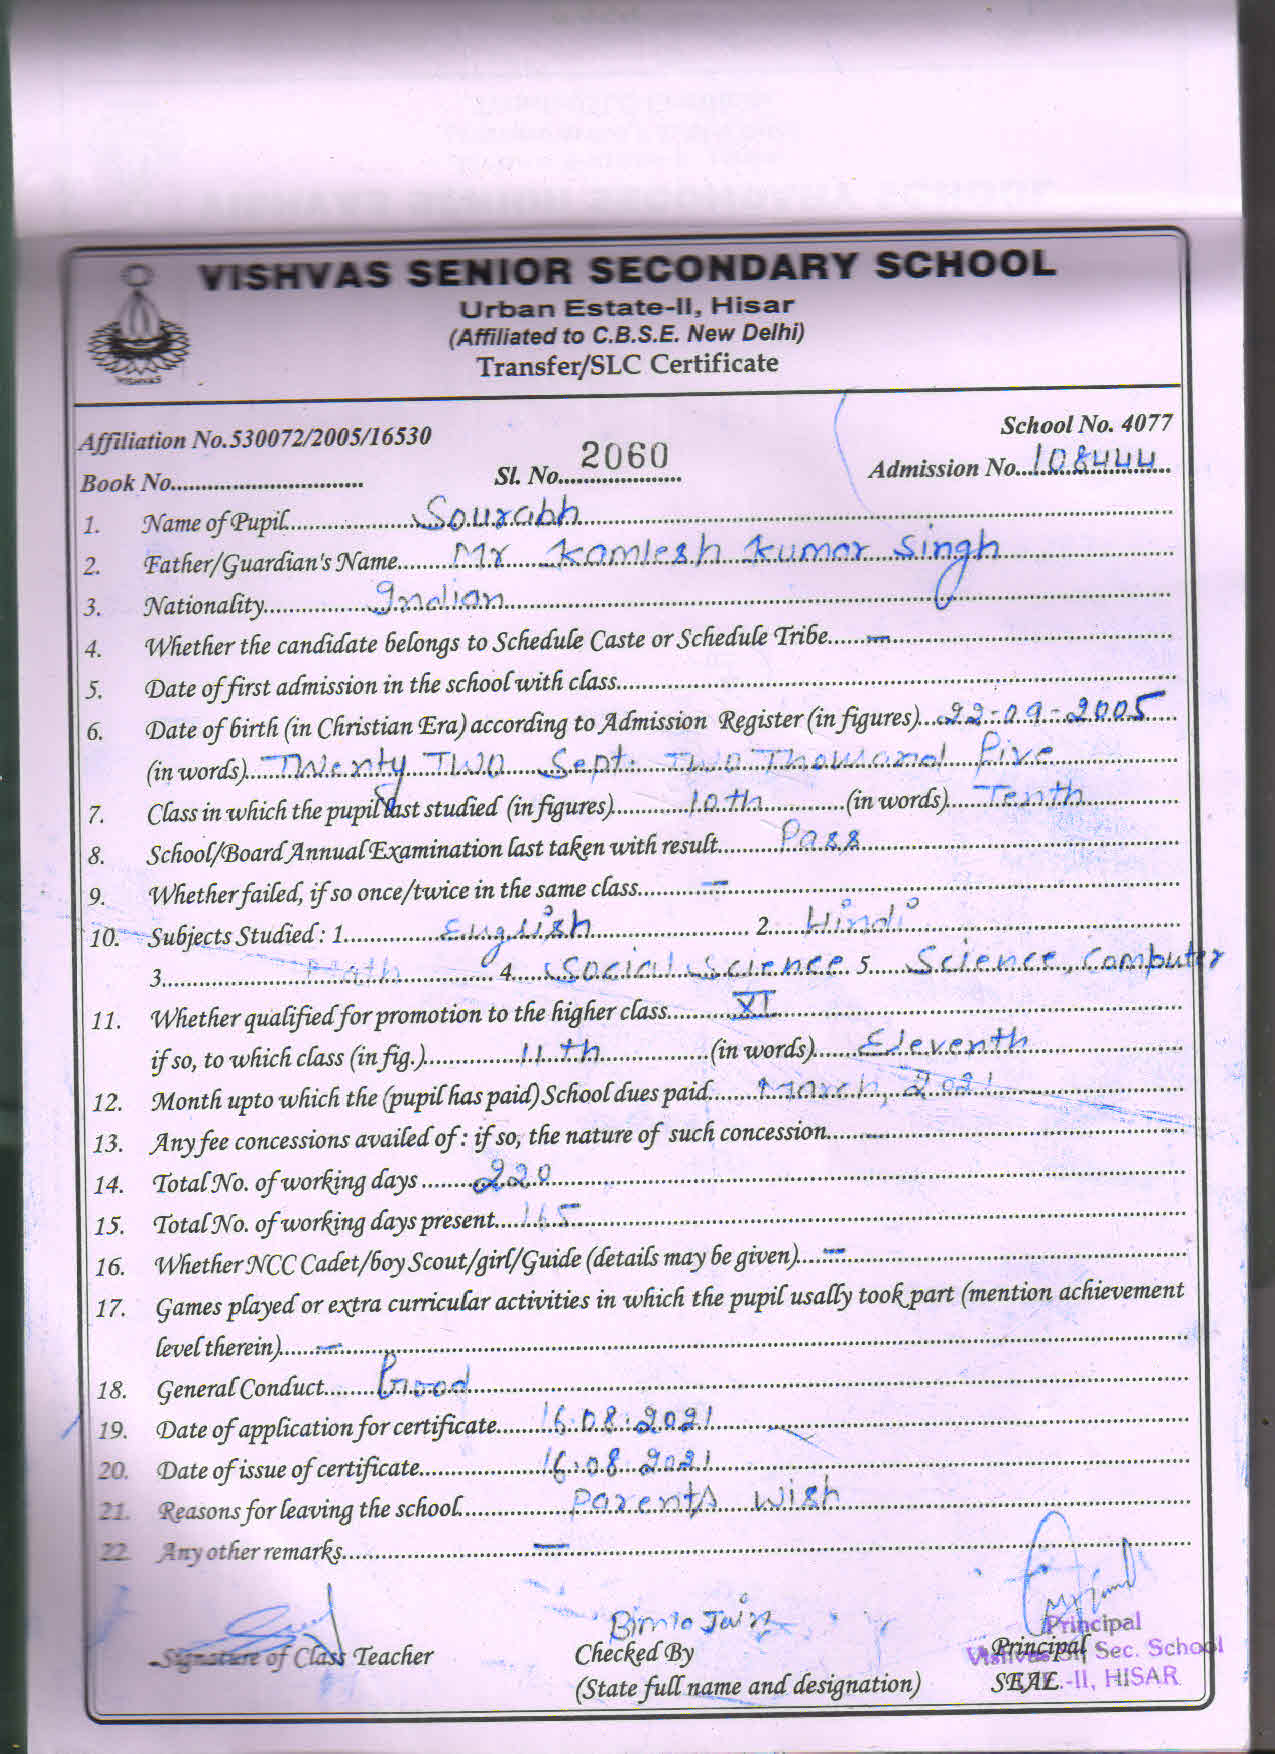 VISHVAS SENIOR SECONDARY SCHOOL
Urban Estate-II, Hisar
(Affiliated to C.B.S.E. New Delhi)
Transfer/SLC Certificate
VISHVAS
Affiliation No.530072/2005/16530
School No. 4077
Book No............ Sl. No. 2060 Admission No. 108444
1. Name of Pupil Sourabh
2. Father/Guardian's Name Mr Kamlesh Kumar Singh
3. Nationality Indian
4. Whether the candidate belongs to Schedule Caste or Schedule Tribe –
5. Date of first admission in the school with class............
6. Date of birth (in Christian Era) according to Admission Register (in figures) 22-09-2005
(in words) Twenty Two Sept. Two Thousand Five
7. Class in which the pupil last studied (in figures) 10th (in words) Tenth
8. School/Board Annual Examination last taken with result Pass
9. Whether failed, if so once/twice in the same class –
10. Subjects Studied : 1. English 2. Hindi
3. Math 4. Social Science 5. Science, Computer
11. Whether qualified for promotion to the higher class XI
if so, to which class (in fig.) 11th (in words) Eleventh
12. Month upto which the (pupil has paid) School dues paid March, 2021
13. Any fee concessions availed of : if so, the nature of such concession –
14. Total No. of working days 220
15. Total No. of working days present 165
16. Whether NCC Cadet/boy Scout/girl/Guide (details may be given) –
17. Games played or extra curricular activities in which the pupil usally took part (mention achievement
level therein) –
18. General Conduct Good
19. Date of application for certificate 16.08.2021
20. Date of issue of certificate 16.08.2021
21. Reasons for leaving the school Parents wish
22. Any other remarks –
Bimla Jain
Principal
Signature of Class Teacher Checked By Principal
Vishvas Sr. Sec. School
(State full name and designation) SEAL
-II, HISAR